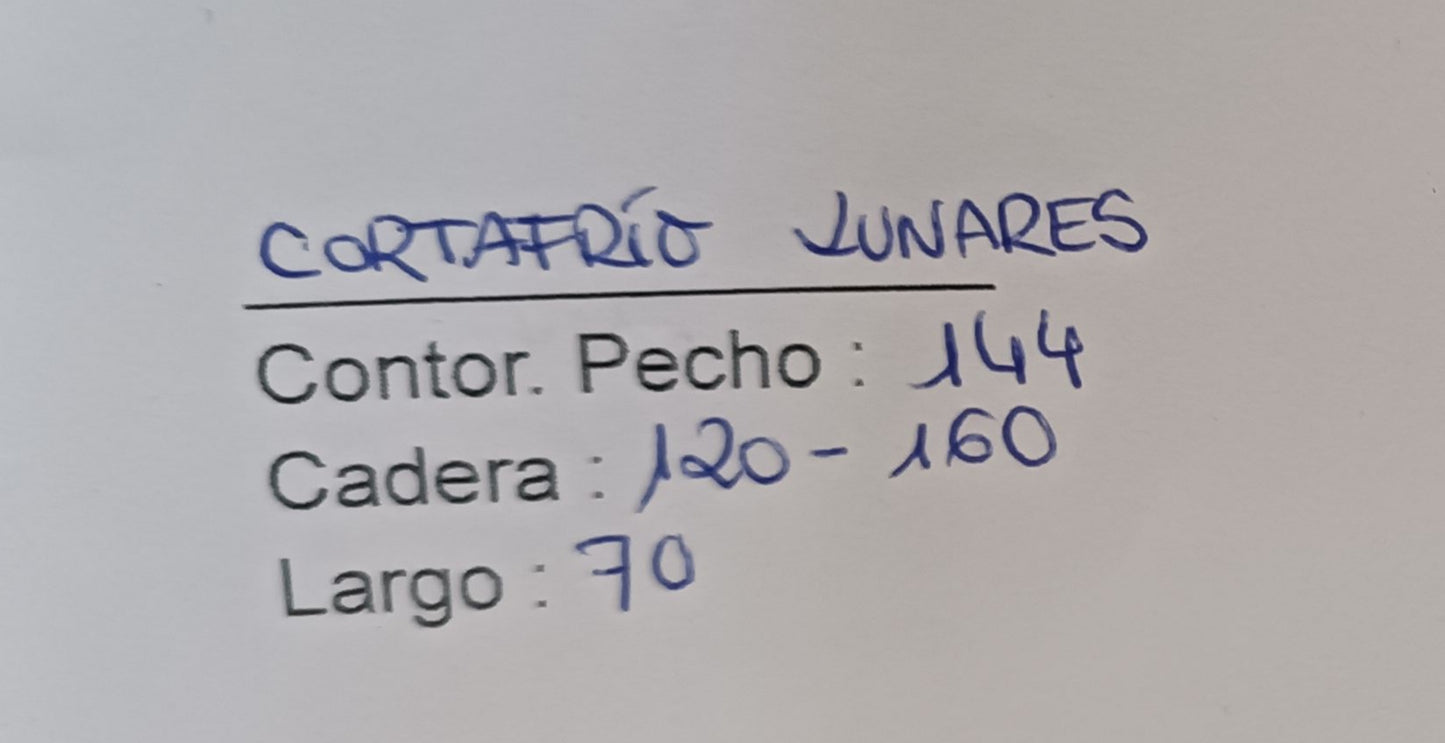 CORTAFRÍO LUNARES
Contor. Pecho : 144
Cadera : 120 - 160
Largo : 70